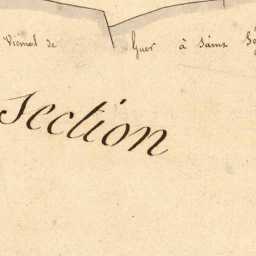 Vicinal de Guer à Saint
Section